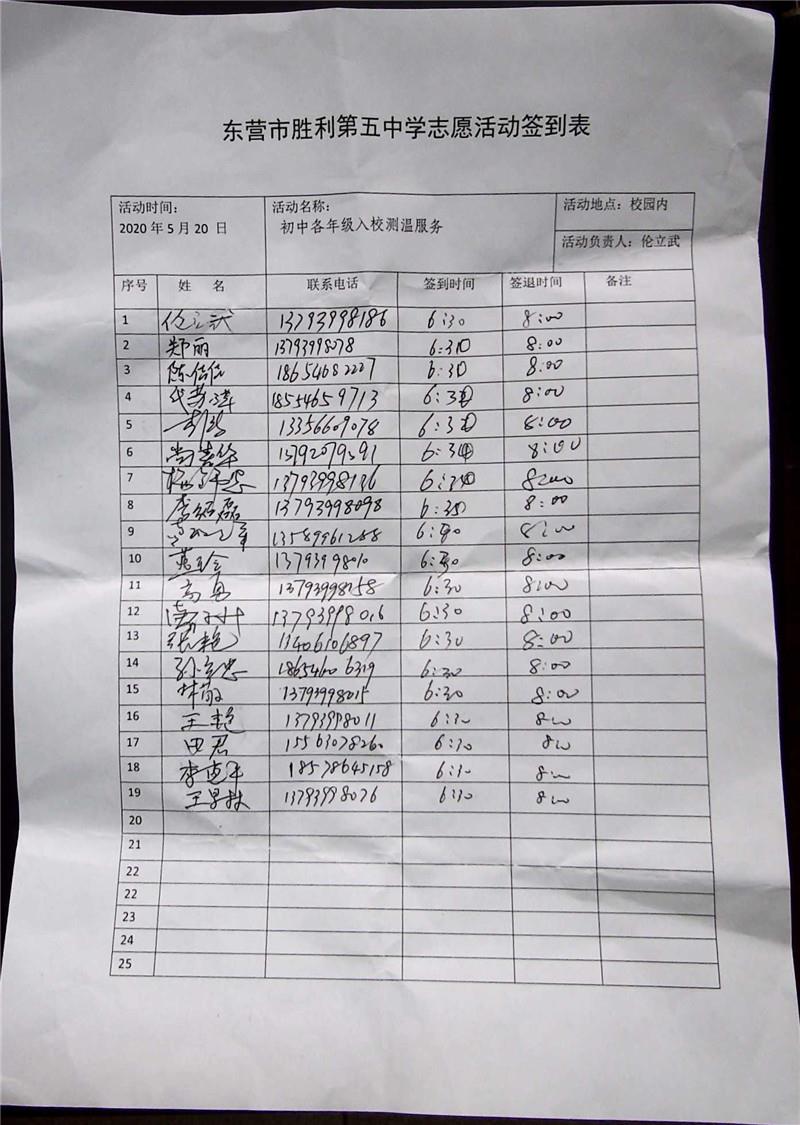 东营市胜利第五中学志愿活动签到表
活动时间： 活动名称： 活动地点：校园内
2020年5月20日 初中各年级入校测温服务
活动负责人：伦立武
序号 姓 名 联系电话 签到时间 签退时间 备注
1 伦立武 13793998186 6:30 8:00
2 郑丽 13793998078 6:30 8:00
3 陈倩倩 18654682227 6:30 8:00
4 1854659713 6:30 8:00
5 13356609078 6:30 8:00
6 尚 华 13792079391 6:30 8:00
7 13793998136 6:30 8:00
8 李绍磊 13793998098 6:30 8:00
9 13589961288 6:30 8:00
10 13793998010 6:30 8:00
11 高勇 13793998258 6:30 8:00
12 13793998016 6:30 8:00
13 张艳 13406106897 6:30 8:00
14 孙 忠 18654606319 6:30 8:00
15 林敬 13793998015 6:30 8:00
16 王艳 13793998011 6:30 800
17 田君 15563078260 6:30 800
18 李 18578645158 6:30 800
19 王 13793998076 6:30 800
20
21
22
22
23
24
25